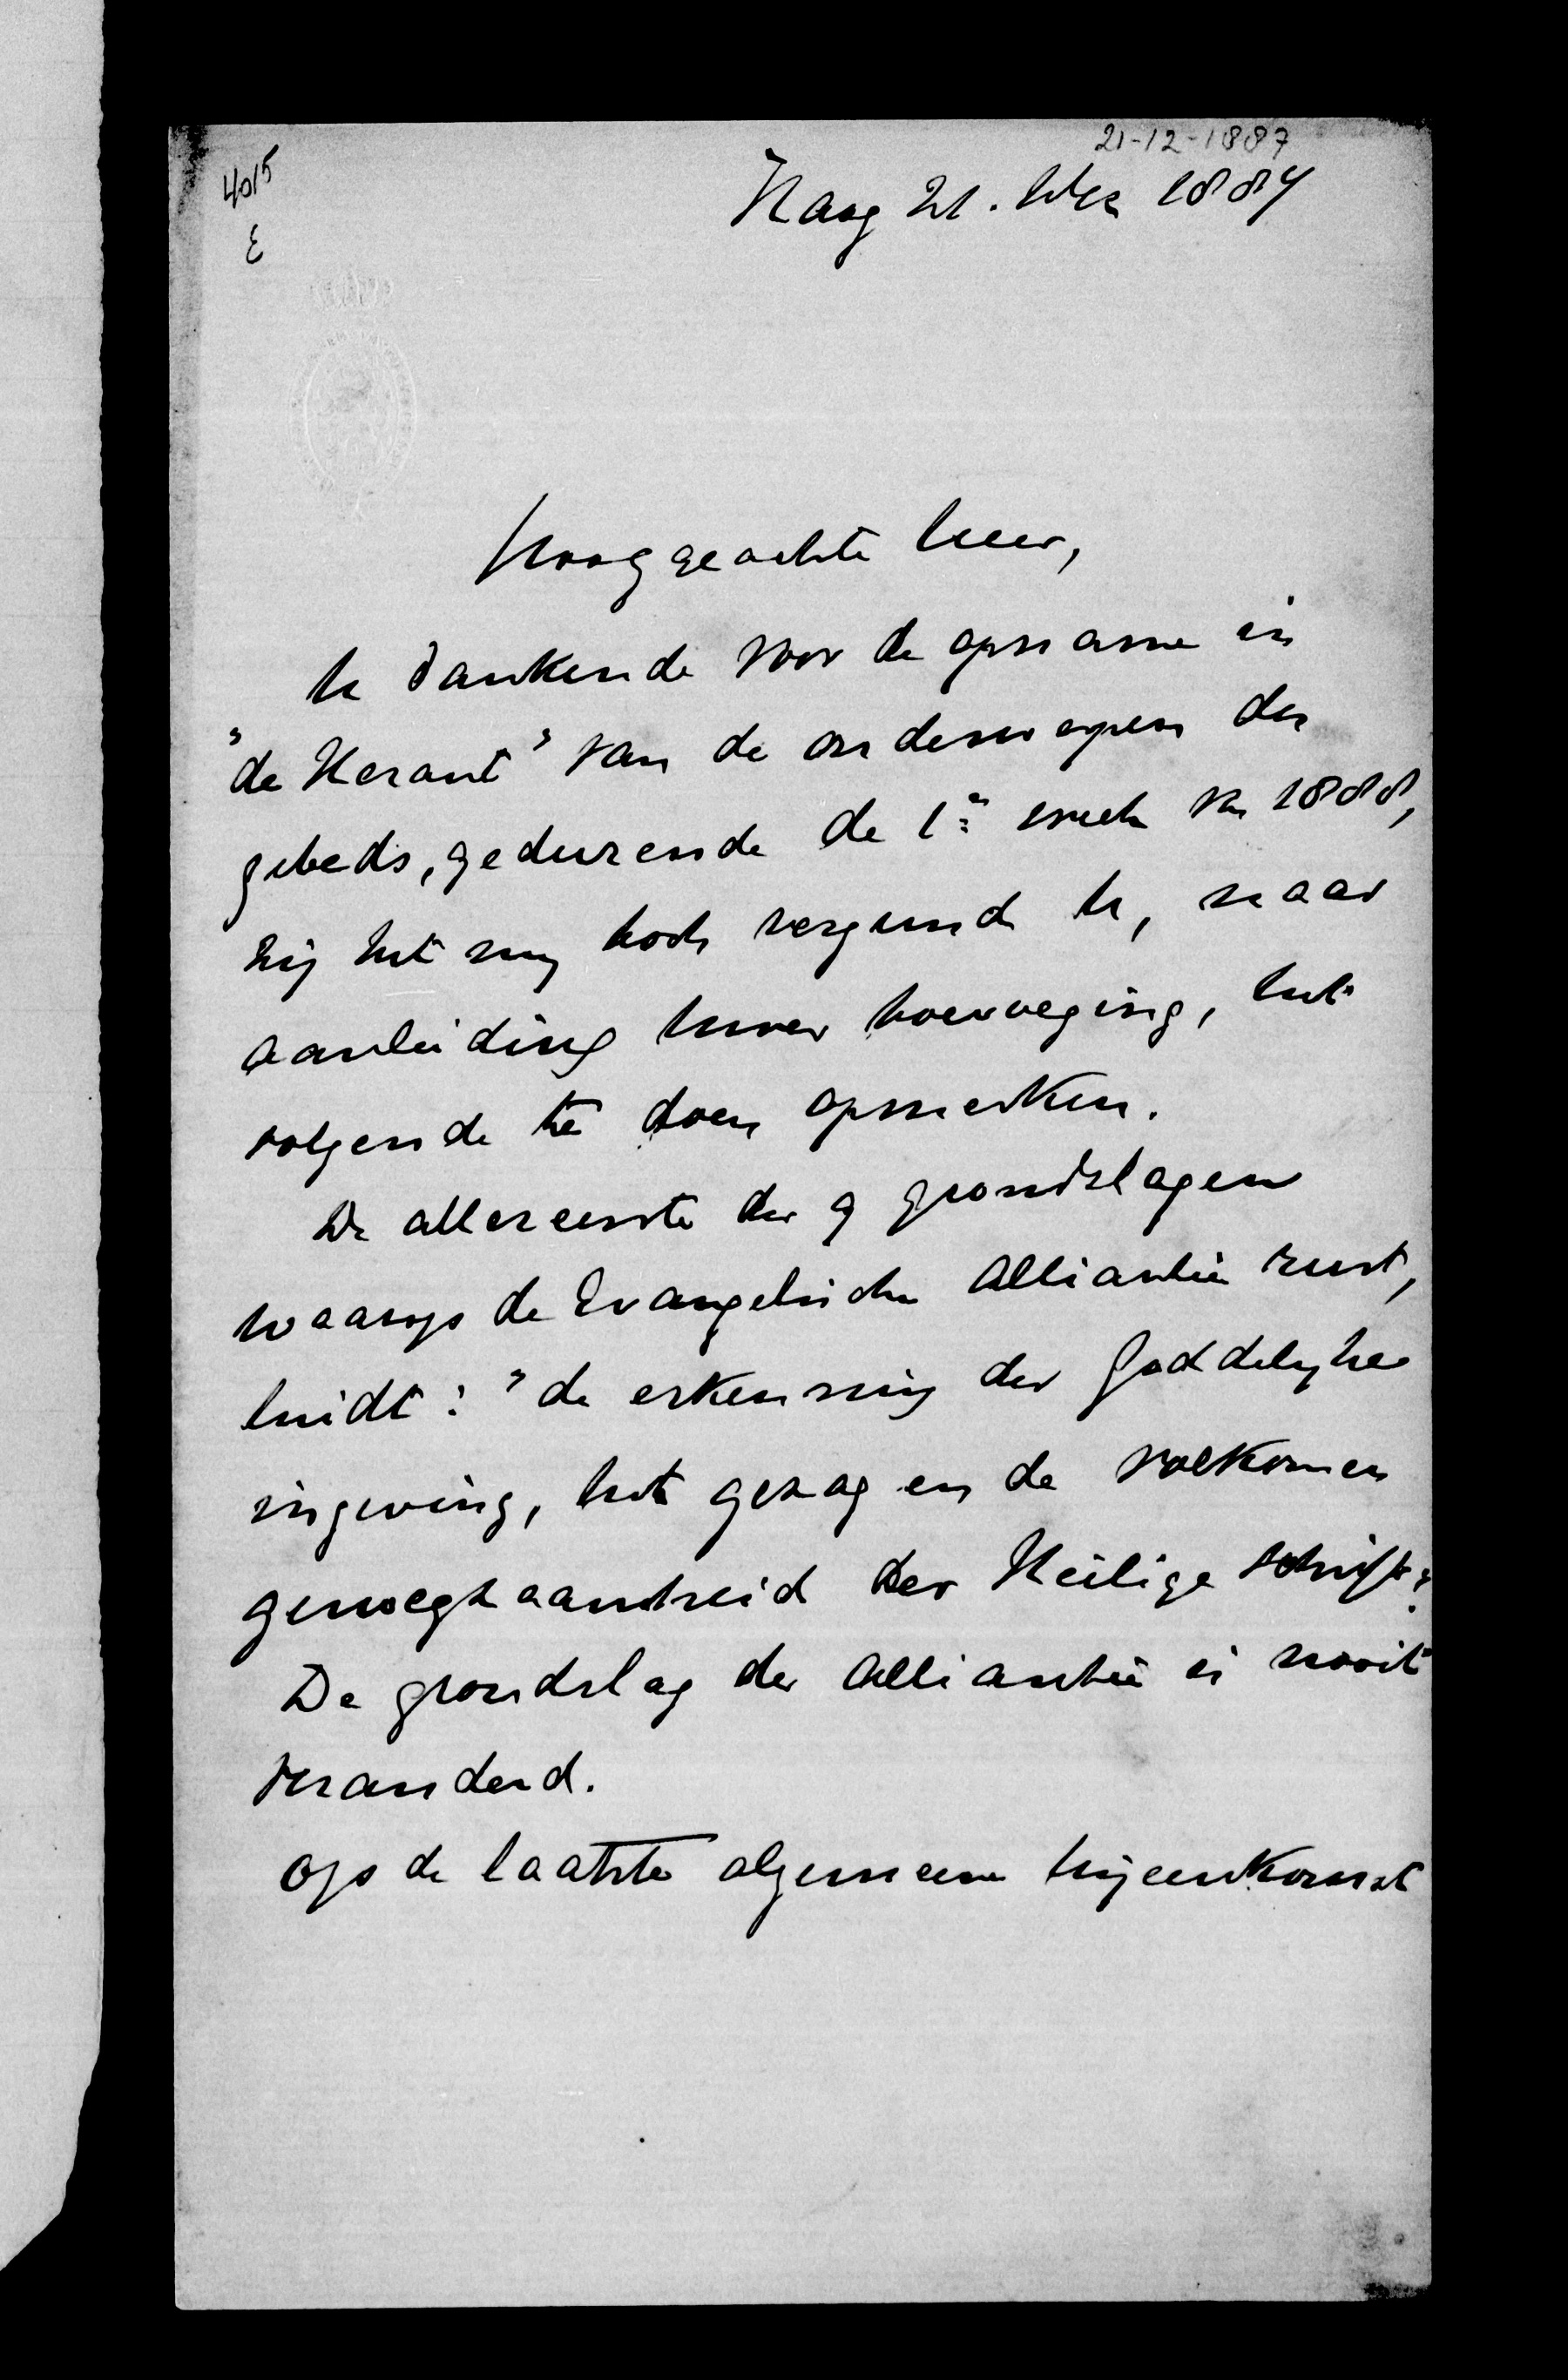 21-12-1887
4015
E
Haag 21. Dec 1887
Hooggeachte heer,
U dankende voor de opname in
"de Heraut" van de onderwerpen des
gebeds, gedurende de 1e week van 1888,
zij het mij toch vergund U, naar
aanleiding Uwer toevoeging, het
volgende te doen opmerken.
De allereerste der 9 grondslagen
waarop de Evangelische Alliantie rust,
luidt: "de erkenning der Goddelyke
ingeving, het gezag en de volkomen
genoegzaamheid der Heilige Schrift".
De grondslag der Alliantie is nooit
veranderd.
Op de laatste algemeene bijeenkomst